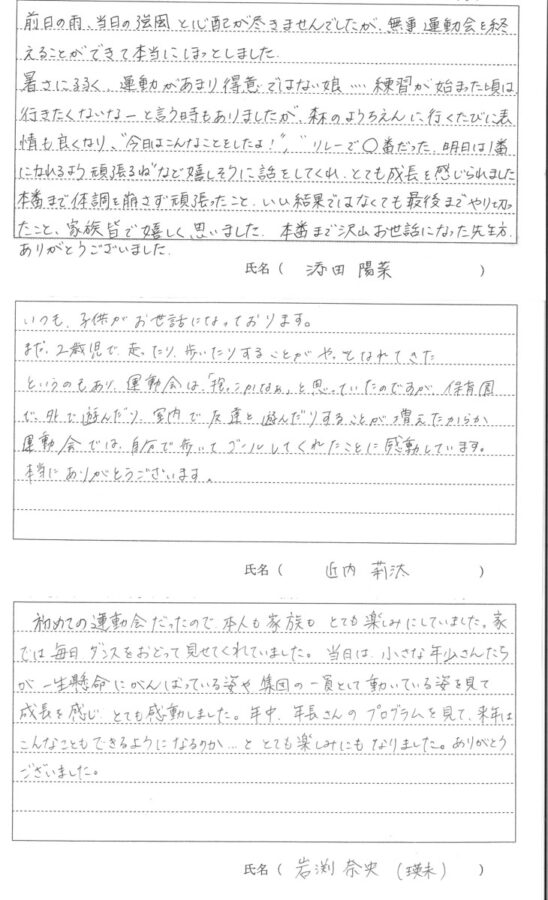 前日の雨、当日の強風と心配が尽きませんでしたが、無事運動会を終
えることができて本当にほっとしました。
暑さに弱く、運動があまり得意ではない娘…。練習が始まった頃は、
行きたくないなーと言う時もありましたが、森のようちえんに行くたびに表
情も良くなり、"今日はこんなことをしたよ!"、"リレーで○番だった、明日は1番
になれるよう頑張るね"など嬉しそうに話をしてくれ、とても成長を感じられました
本番まで体調を崩さず頑張ったこと、いい結果ではなくても最後までやり切っ
たこと、家族皆で嬉しく思いました。本番まで沢山お世話になった先生方、
ありがとうございました。
氏名( 添田 陽菜 )
いつも、子供がお世話になっております。
まだ、2歳児で、走ったり、歩いたりすることがやっとなれてきた
というのもあり、運動会は、「抱っこかなぁ」と思っていたのですが、保育園
で、外で遊んだり、室内で友達と遊んだりすることが増えたからか
運動会では、自分で歩いてゴールしてくれたことに感動しています。
本当にありがとうございます。
氏名( 近内 莉汰 )
初めての運動会だったので、本人も家族もとても楽しみにしていました。家
では毎日ダンスをおどって見せてくれていました。当日は、小さな年少さんたち
が一生懸命にがんばっている姿や集団の一員として動いている姿を見て
成長を感じ、とても感動しました。年中、年長さんのプログラムを見て、来年は
こんなこともできるようになるのか…ととても楽しみにもなりました。ありがとう
ございました。
氏名( 岩渕 奈央 (瑛未) )